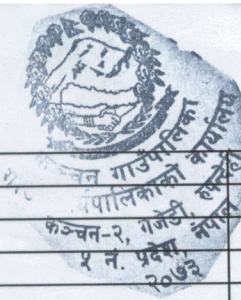 कञ्चन गाउँपालिका
गाउँपालिकाको कार्यालय
कञ्चन-२, गजेडी, रुपन्देही
५ नं. प्रदेश, नेपाल
२०७३